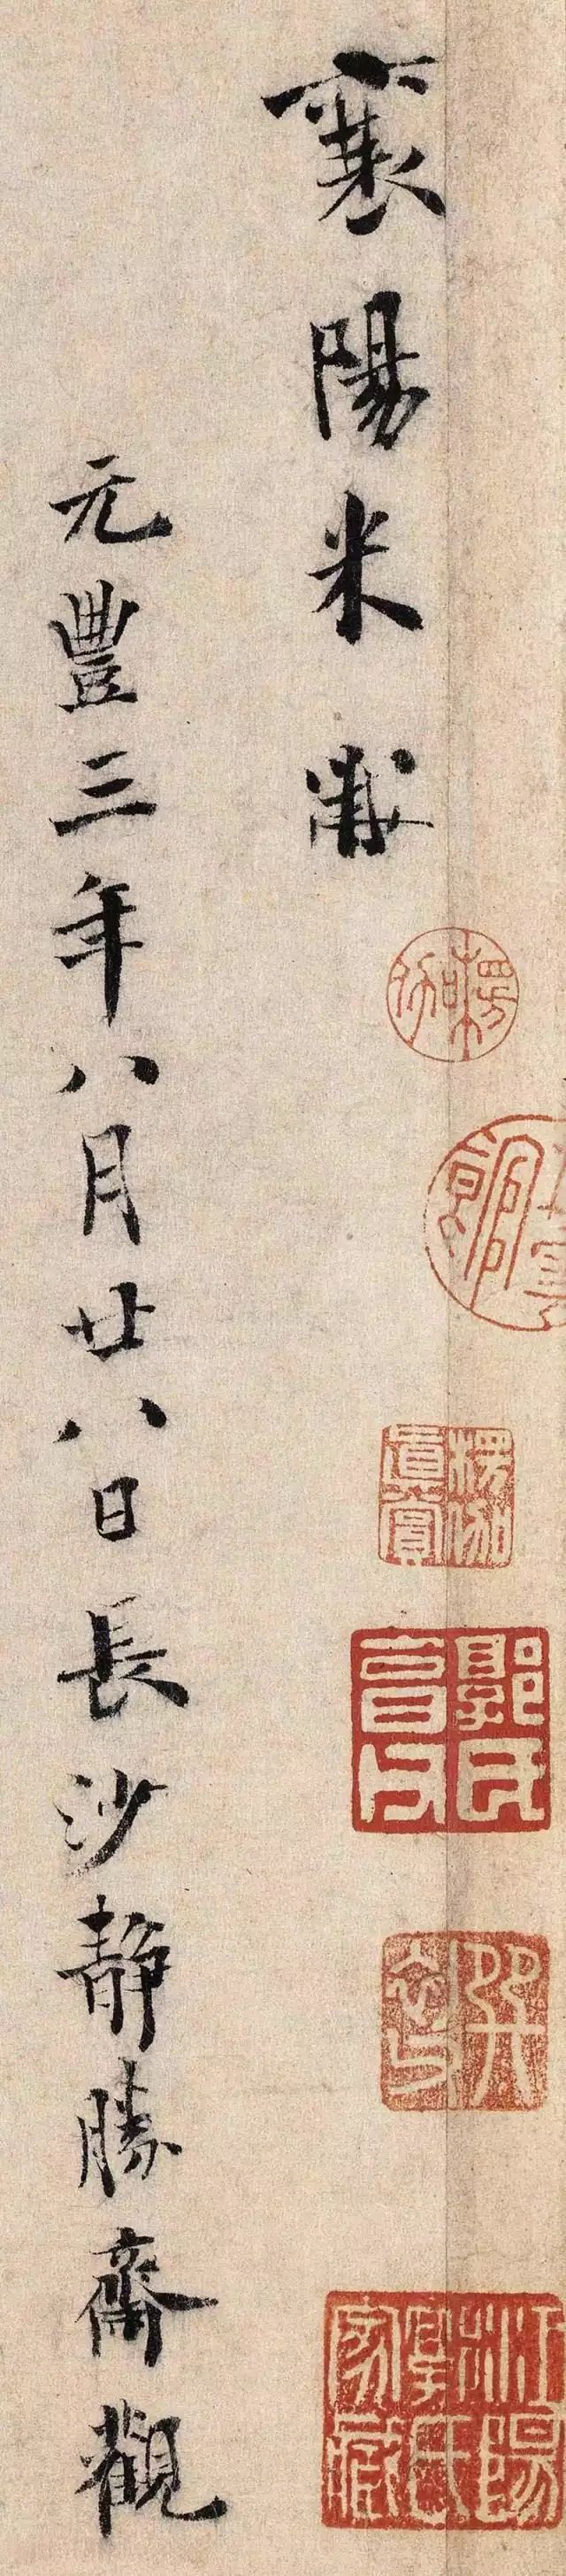 襄陽米黻
元豐三年八月廿八日長沙靜勝齋觀
楞伽真賞